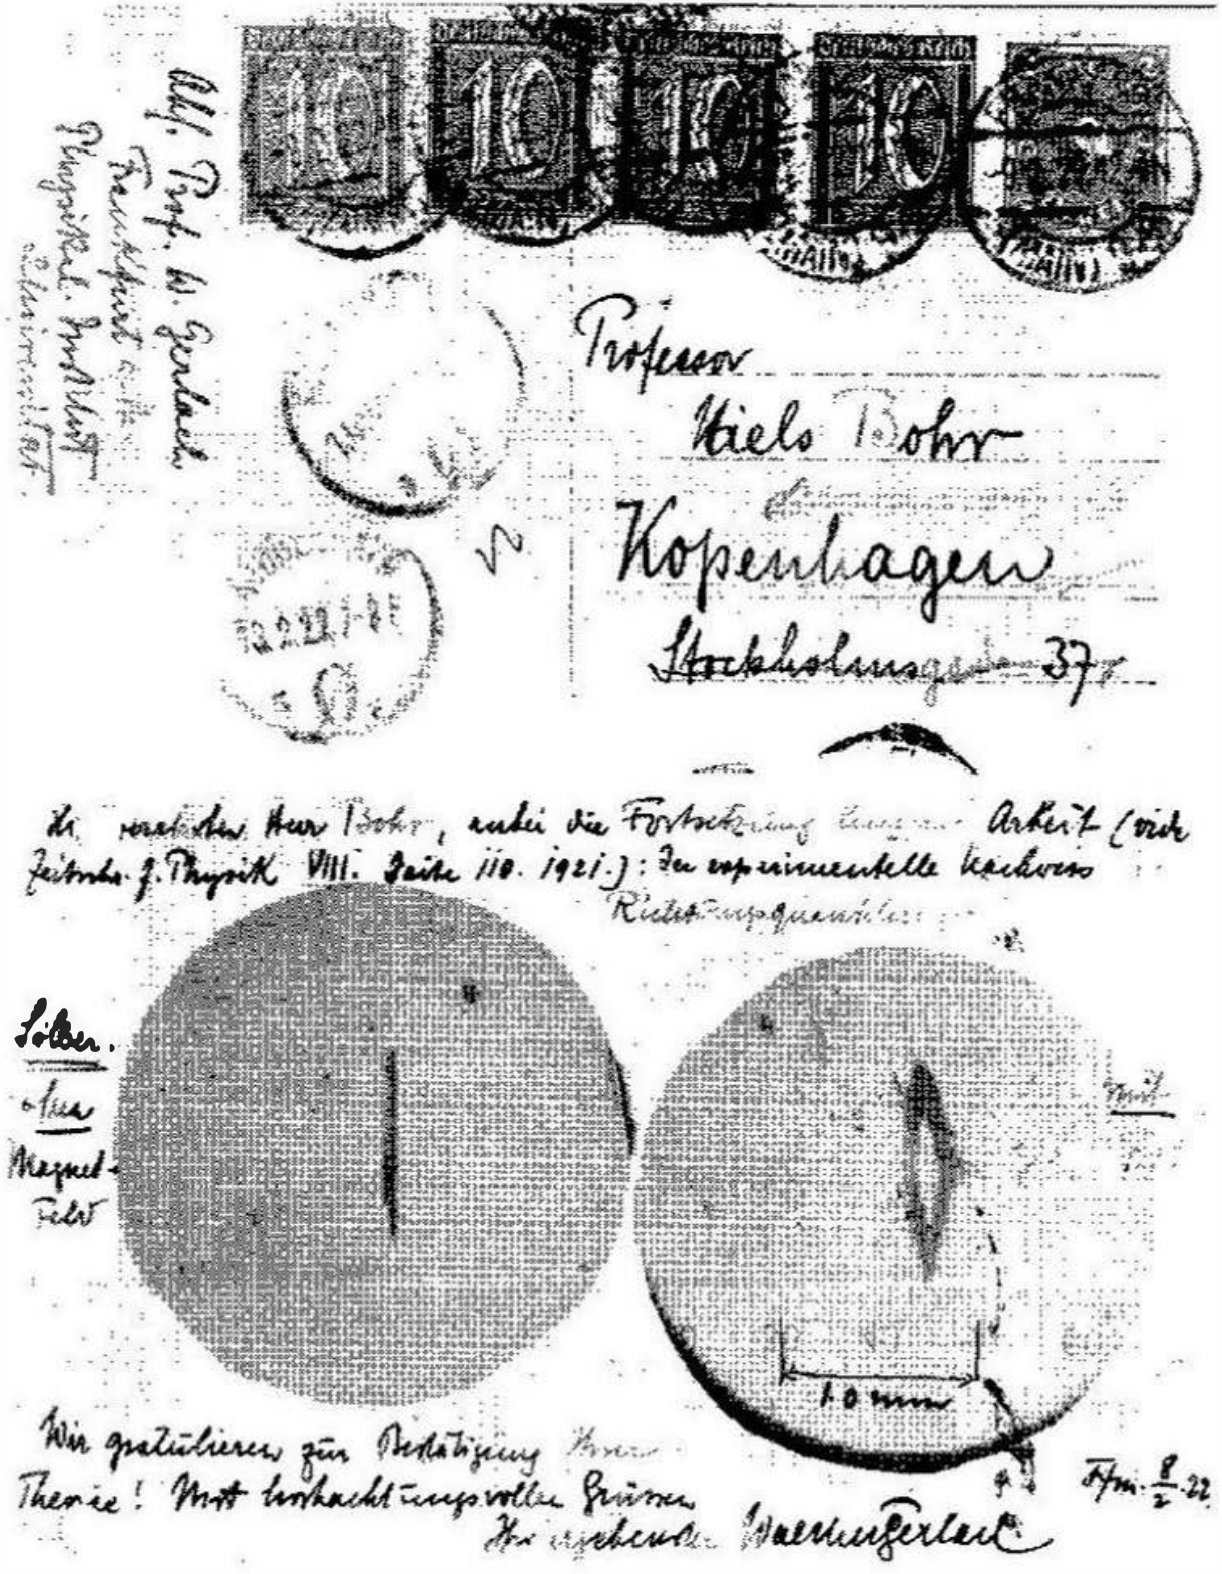 Deutsches Reich
10 10 10 10
Abs. Prof. W. Gerlach
Frankfurt a. M.
Physikal. Institut
Universität.
Professor
Niels Bohr
Kopenhagen
Stockholmsgade 37
verehrter Herr Bohr, anbei die Fortsetzung Arbeit (vide
Zeitschr. f. Physik VIII. Seite 110. 1921.): Der experimentelle Nachweis
Richtungsquantelung
Silber.
ohne
Magnet-
Feld
mit
1.0 mm
Wir gratulieren zur Bestätigung Ihrer
Theorie! Mit hochachtungsvollen Grüssen
Ihr ergebenster Walther Gerlach
Ffm. 8/2.22.